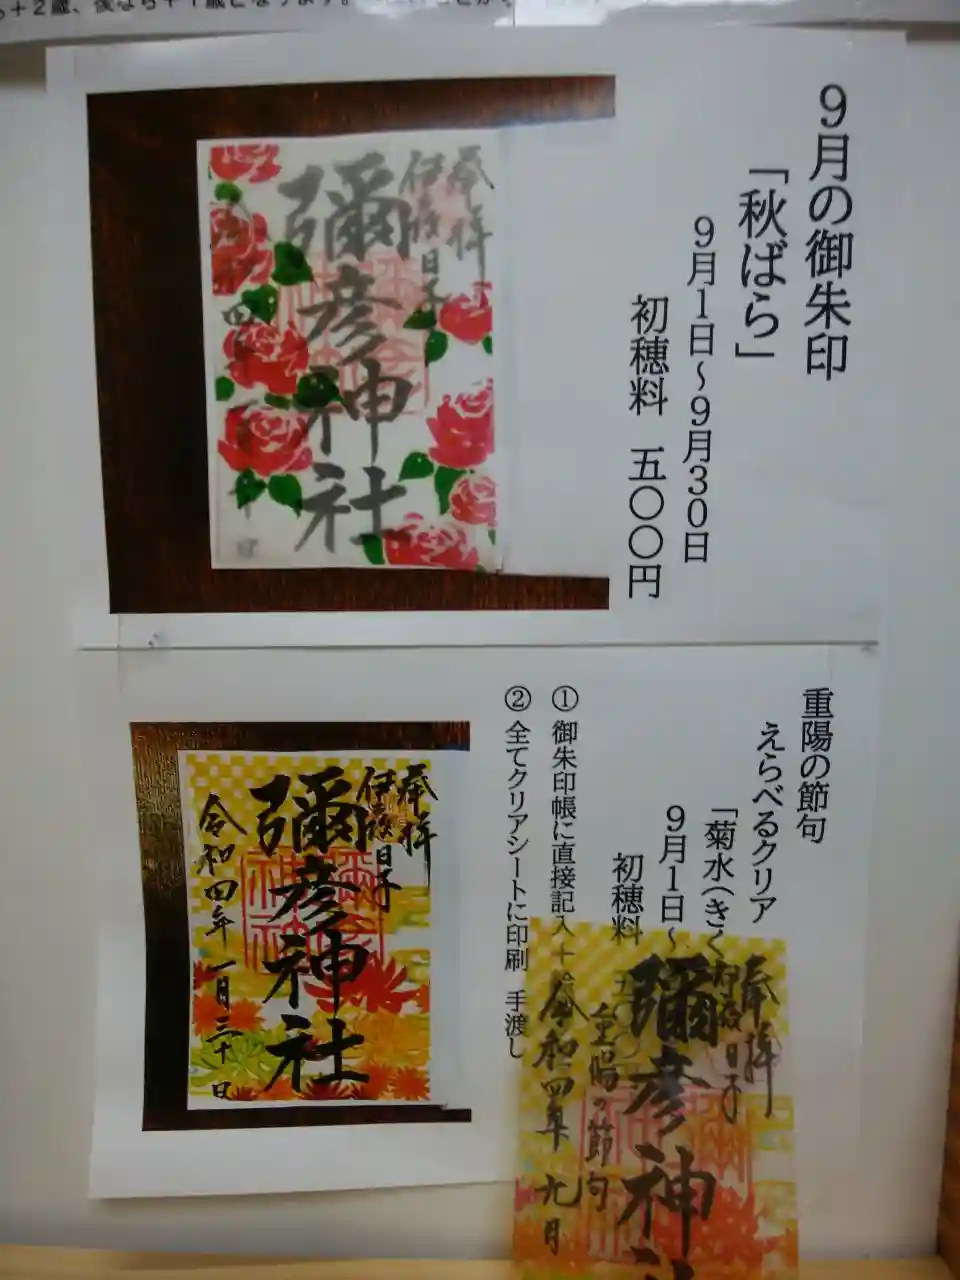 ９月の御朱印
「秋ばら」
９月１日～９月３０日
初穂料　五〇〇円
奉拝
伊夜日子
彌彦神社
令和四年
重陽の節句
えらべるクリア
「菊水（きく
９月１日～
初穂料
① 御朱印帳に直接記入＋
② 全てクリアシートに印刷　手渡し
奉拝
伊夜日子
彌彦神社
令和四年一月三十日
奉拝
伊夜日子
彌彦神社
重陽の節句
令和四年九月